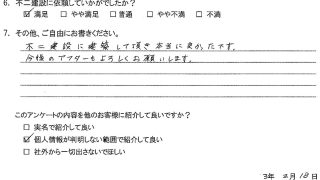 6. 不二建設に依頼していかがでしたか?
☑ 満足 ☐ やや満足 ☐ 普通 ☐ やや不満 ☐ 不満
7. その他、ご自由にお書きください。
不二建設に建築して頂き本当に良かったです。
今後のアフターもよろしくお願いします。
このアンケートの内容を他のお客様に紹介して良いですか?
☐ 実名で紹介して良い
☑ 個人情報が判明しない範囲で紹介して良い
☐ 社外から一切出さないでほしい
3年 2月 18日